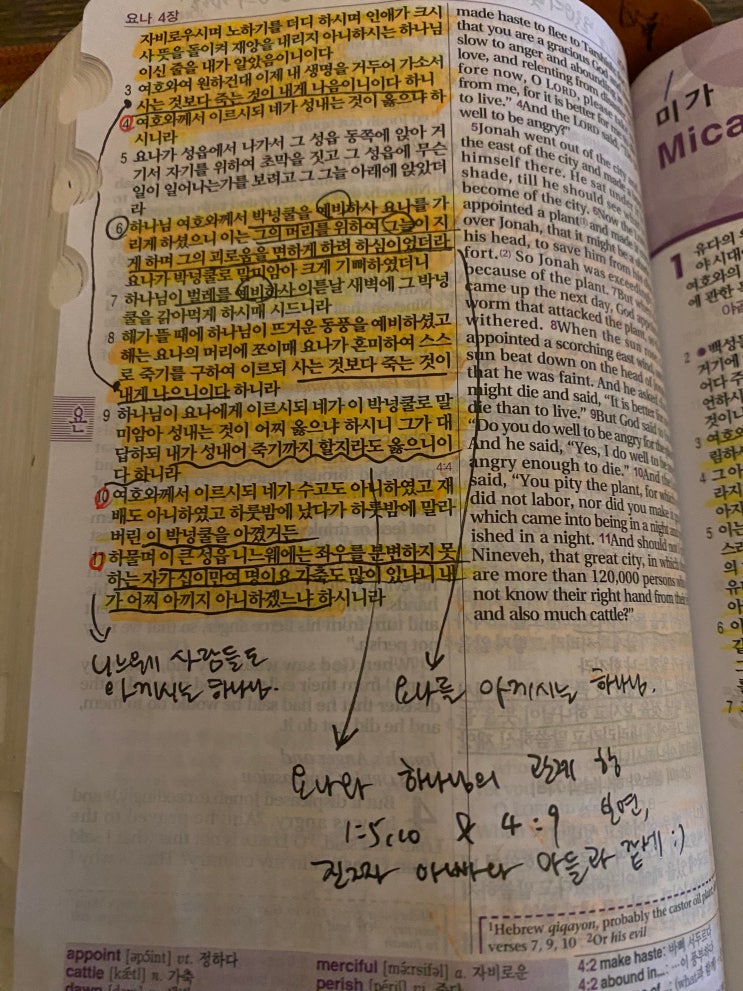 요나 4장
자비로우시며 노하기를 더디 하시며 인애가 크시
사 뜻을 돌이켜 재앙을 내리지 아니하시는 하나님
이신 줄을 내가 알았음이니이다
3 여호와여 원하건대 이제 내 생명을 거두어 가소서
사는 것보다 죽는 것이 내게 나음이니이다 하니
4 여호와께서 이르시되 네가 성내는 것이 옳으냐 하
시니라
5 요나가 성읍에서 나가서 그 성읍 동쪽에 앉아 거
기서 자기를 위하여 초막을 짓고 그 성읍에 무슨
일이 일어나는가를 보려고 그 그늘 아래에 앉았더
라
6 하나님 여호와께서 박넝쿨을 예비하사 요나를 가
리게 하셨으니 이는 그의 머리를 위하여 그늘이 지
게 하며 그의 괴로움을 면하게 하려 하심이었더라
요나가 박넝쿨로 말미암아 크게 기뻐하였더니
7 하나님이 벌레를 예비하사 이튿날 새벽에 그 박넝
쿨을 갉아먹게 하시매 시드니라
8 해가 뜰 때에 하나님이 뜨거운 동풍을 예비하셨고
해는 요나의 머리에 쪼이매 요나가 혼미하여 스스
로 죽기를 구하여 이르되 사는 것보다 죽는 것이
내게 나으니이다 하니라
욘
9 하나님이 요나에게 이르시되 네가 이 박넝쿨로 말
미암아 성내는 것이 어찌 옳으냐 하시니 그가 대
답하되 내가 성내어 죽기까지 할지라도 옳으니이
다 하니라
4:4
10 여호와께서 이르시되 네가 수고도 아니하였고 재
배도 아니하였고 하룻밤에 났다가 하룻밤에 말라
버린 이 박넝쿨을 아꼈거든
11 하물며 이 큰 성읍 니느웨에는 좌우를 분변하지 못
하는 자가 십이만여 명이요 가축도 많이 있나니 내
가 어찌 아끼지 아니하겠느냐 하시니라
made haste to flee to
that you are a gracious God
slow to anger and abounding
love, and relenting from
fore now, O LORD, please
from me, for it is better for
to live." 4And the LORD said,
well to be angry?"
5Jonah went out of the city and
the east of the city and made
himself there. He sat under
shade, till he should see what
become of the city. 6Now the
appointed a plant(1) and made it
over Jonah, that it might be a
his head, to save him from his
fort.(2) So Jonah was exceedingly
because of the plant. 7But when
came up the next day, God
worm that attacked the plant,
withered. 8When the sun
appointed a scorching east wind,
sun beat down on the head of
that he was faint. And he asked
might die and said, "It is better for
die than to live." 9But God said to
"Do you do well to be angry for the
And he said, "Yes, I do well to be
angry enough to die." 10And the
said, "You pity the plant, for which
did not labor, nor did you make it
which came into being in a night and
ished in a night. 11And should not
Nineveh, that great city, in which
are more than 120,000 persons who
not know their right hand from their
and also much cattle?"
니느웨 사람들도
아끼시는 하나님.
요나를 아끼시는 하나님.
요나와 하나님의 관계 항
1:5,10 & 4:9 보면,
진짜 아빠와 아들과 같네 :)
1Hebrew qiqayon, probably the castor oil plant;
verses 7, 9, 10 2Or his evil
appoint [əpɔ́int] vt. 정하다
cattle [kǽtl] n. 가축
merciful [mə́ːrsifəl] a. 자비로운
perish [périʃ] vi. 죽다
4:2 make haste: 바삐 서두르다
4:2 abound in...: ...이 풍부하다
미가
Mica
1
2
3
4
5
6
7